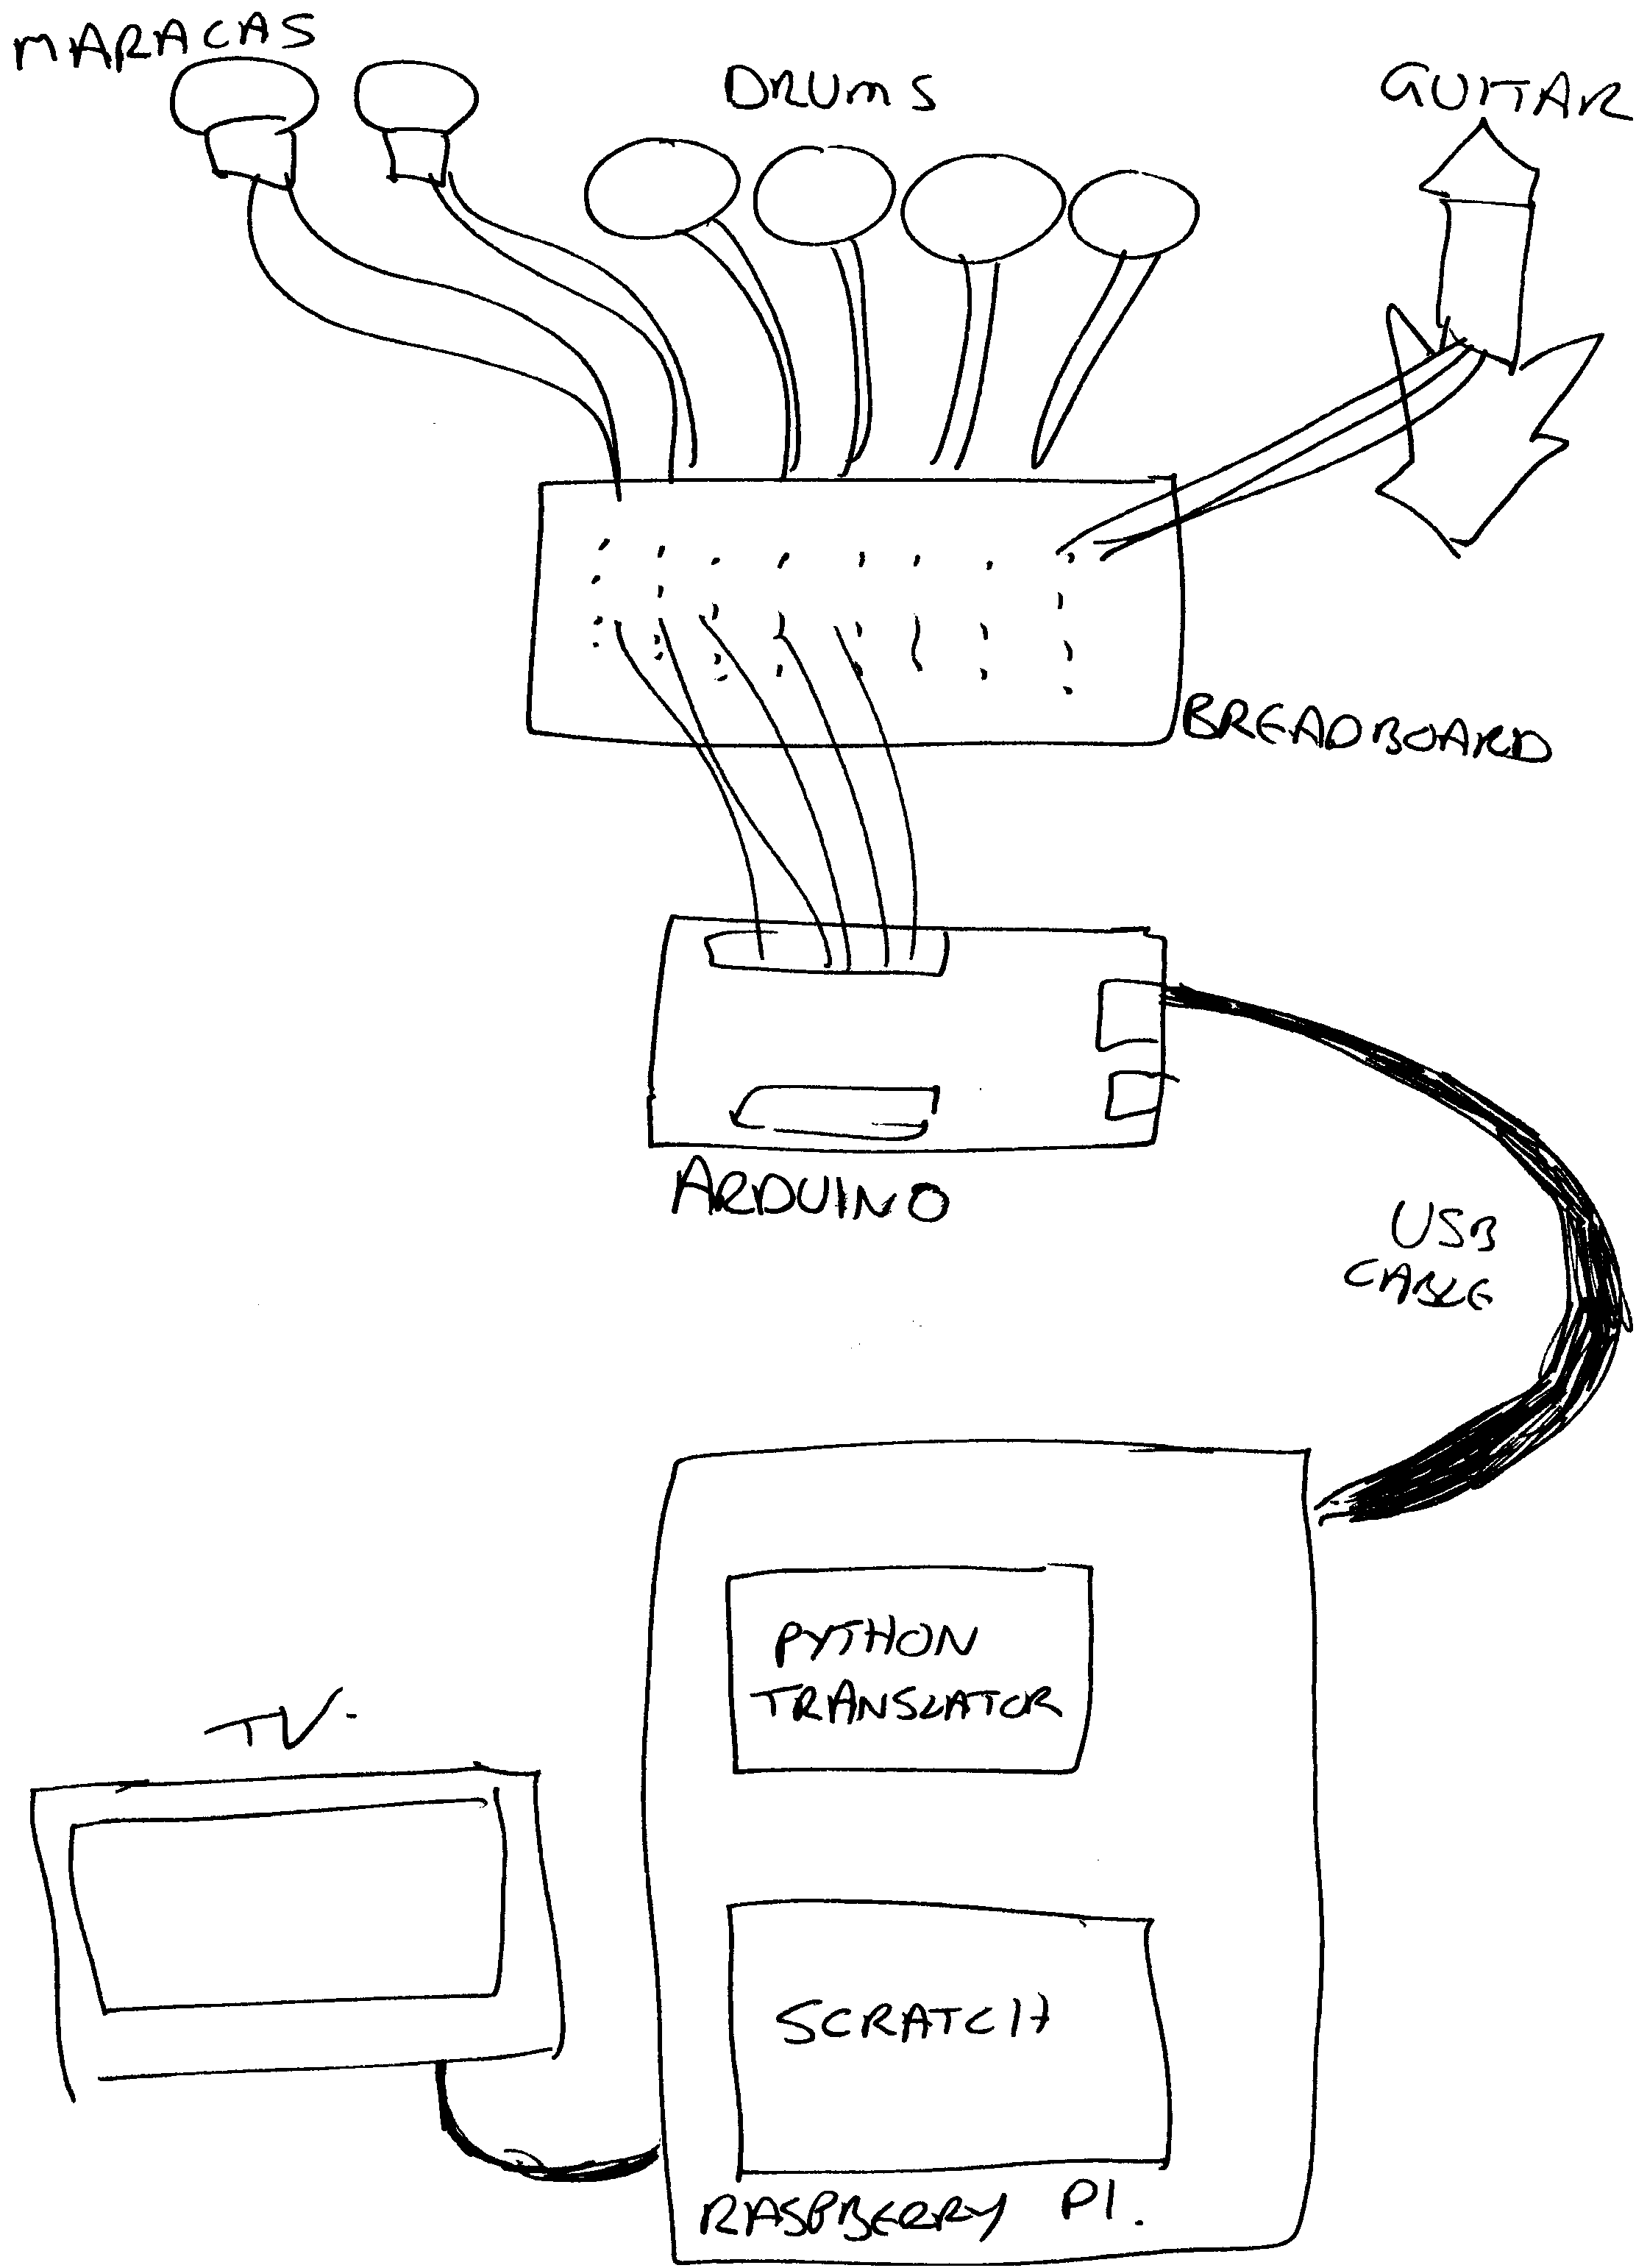 MARACAS
DRUMS
GUITAR
BREADBOARD
ARDUINO
USB
CABLE
PYTHON
TRANSLATOR
TV.
SCRATCH
RASPBERRY PI.